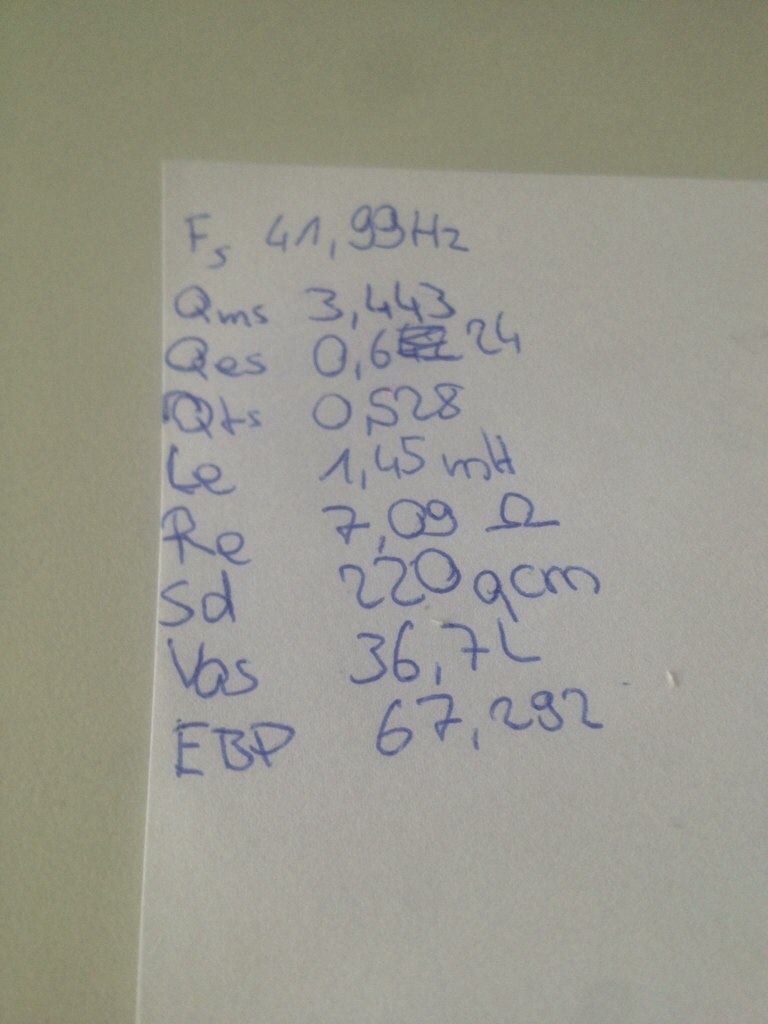 Fs 41,99Hz
Qms 3,443
Qes 0,624
Qts 0,528
Le 1,45 mH
Re 7,09 Ω
Sd 220 qcm
Vas 36,7L
EBP 67,292